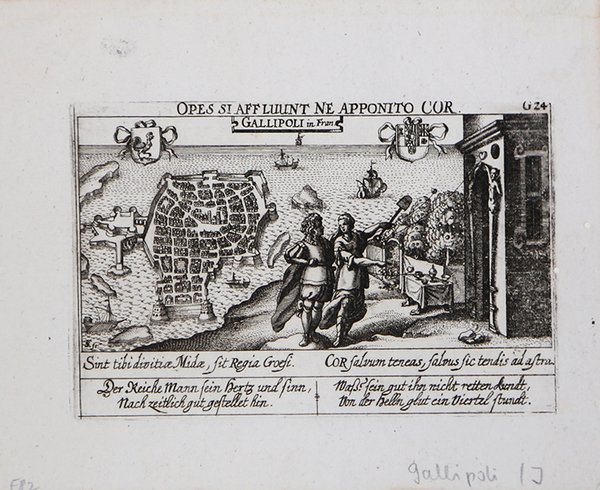 OPES SI AFFLUUNT NE APPONITO COR
G 24
GALLIPOLI in Fran
Sint tibi divitiæ Midæ, sit Regia Croesi.
COR salvum teneas, salvus sic tendis ad astra.
Der Reiche Mann sein Hertz und sinn,
Nach zeitlich gut gestellet hin.
Wass sein gut ihn nicht retten kundt,
Von der Helln glut ein viertel stundt.
Gallipoli
F82